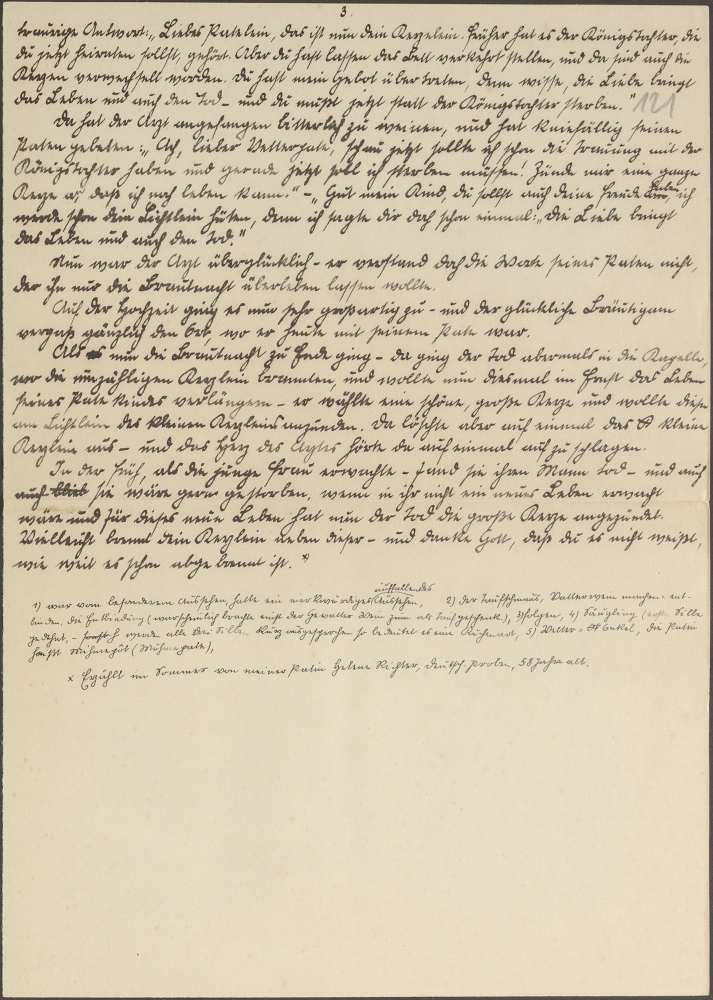 3.
traurige Antwort: „Liebes Patelein, das ist nun dein Kerzelein. Früher hat es der Königstochter, die
du jetzt heiraten sollst, gehört. Aber du hast lassen das Bett verkehrt stellen, und da sind auch die
Kerzen verwechselt worden. Du hast mein Gebot übertreten, denn wisse, die Liebe bringt
das Leben und auch den Tod – und du mußt jetzt statt der Königstochter sterben."
121
Da hat der Arzt angefangen bitterlich zu weinen, und hat kniefällig seinen
Paten gebeten: „Ach, lieber Vetterpate, schau jetzt sollte ich schon die Trauung mit der
Königstochter haben und gerade jetzt soll ich sterben müssen! Zünde mir eine ganze
Kerze an, daß ich noch leben kann." – „Gut mein Kind, du sollst auch deine Freude haben, ich
werde schon dein Lichtlein hüten, denn ich sagte dir doch schon einmal: „Die Liebe bringt
das Leben und auch den Tod."
Nun war der Arzt überglücklich – er verstand doch die Worte seines Paten nicht,
der ihn nur die Brautnacht überleben lassen wollte.
Auf der Hochzeit ging es nun sehr großartig zu – und der glückliche Bräutigam
vergaß gänzlich den Ort, wo er heute mit seinem Pate war.
Als es nun die Brautnacht zu Ende ging – da ging der Tod abermals in die Kapelle,
wo die unzähligen Kerzlein brannten, und wollte nun diesmal im Ernst das Leben
seines Patenkindes verlängern – er wählte eine schöne, große Kerze und wollte diese
am Lichtlein des kleinen Kerzleins anzünden. Da löschte aber auf einmal das kleine
Kerzlein aus – und das Herz des Arztes hörte da auf einmal auf zu schlagen.
In der Früh, als die junge Frau erwachte – fand sie ihren Mann tod – und auch
auch blieb sie wäre gern gestorben, wenn in ihr nicht ein neues Leben erwacht
wäre und für dieses neue Leben hat nun der Tod die große Kerze angezündet.
Vielleicht brennt dein Kerzlein neben dieser – und danke Gott, daß du es nicht weißt,
wie weit es schon abgebrannt ist. x)
auffallendes
1) war von besonderem Aussehen, hatte ein merkwürdiges Aussehen, 2) der Taufschmaus,
linden, die Entbindung (wahrscheinlich brachte einst der Gevatter Wein zum als Taufgeschenk), 3) folgen, 4) Säugling (erste Silbe
gedehnt, – sonst werden alle drei Silben kurz ausgesprochen so bedeutet es eine Kuchenart, 5) Vetter = Onkel, die Patin
heißt Mühmegöt (Mühmepate),
x Erzählt im Sommer von meiner Patin Helene Richter, Deutsch-Proben, 58 Jahre alt.